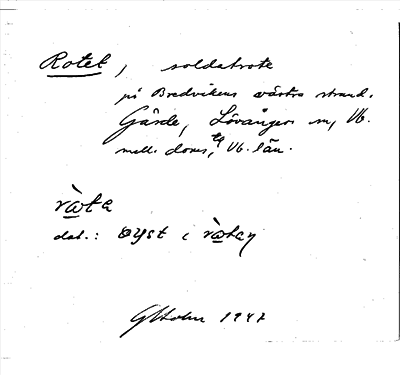 Rotet, soldatrote
på Bredvikens västra strand.
Gärde, Lövångers sn, Vb.
mell. doms, Vb. län.
dat.: i
GHolm 1947